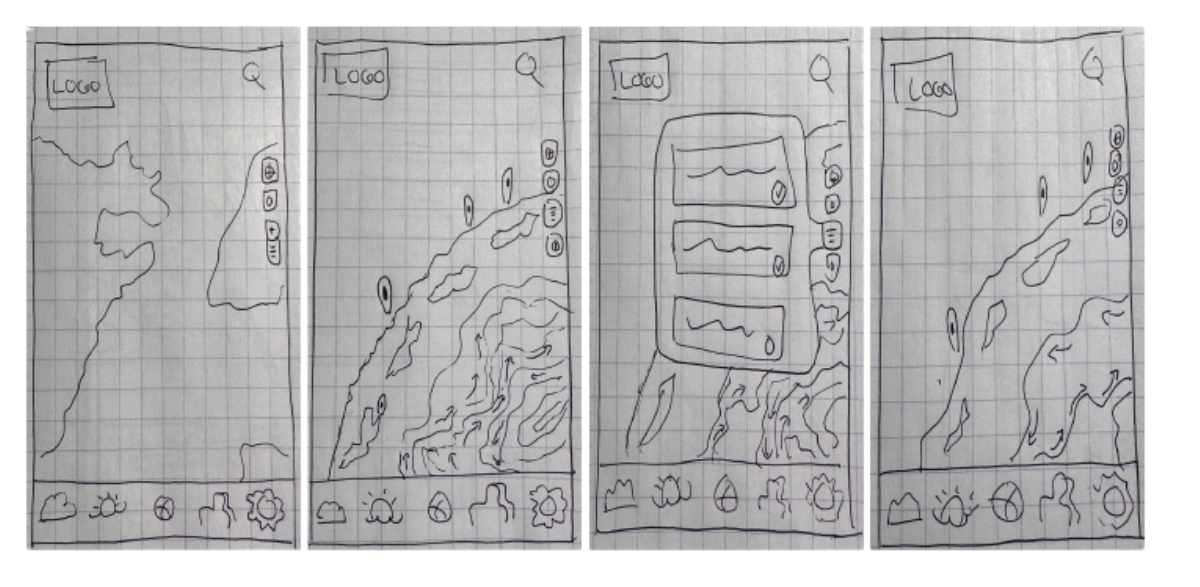 LOGO
LOGO
LOGO
LOGO